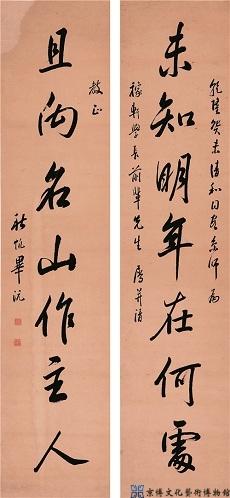 未知明年在何處
乾隆癸未清和日書奉師為
稼軒學長前輩先生屬并請
且向名山作主人
教正
秋帆畢沅
京博文化藝術博物館